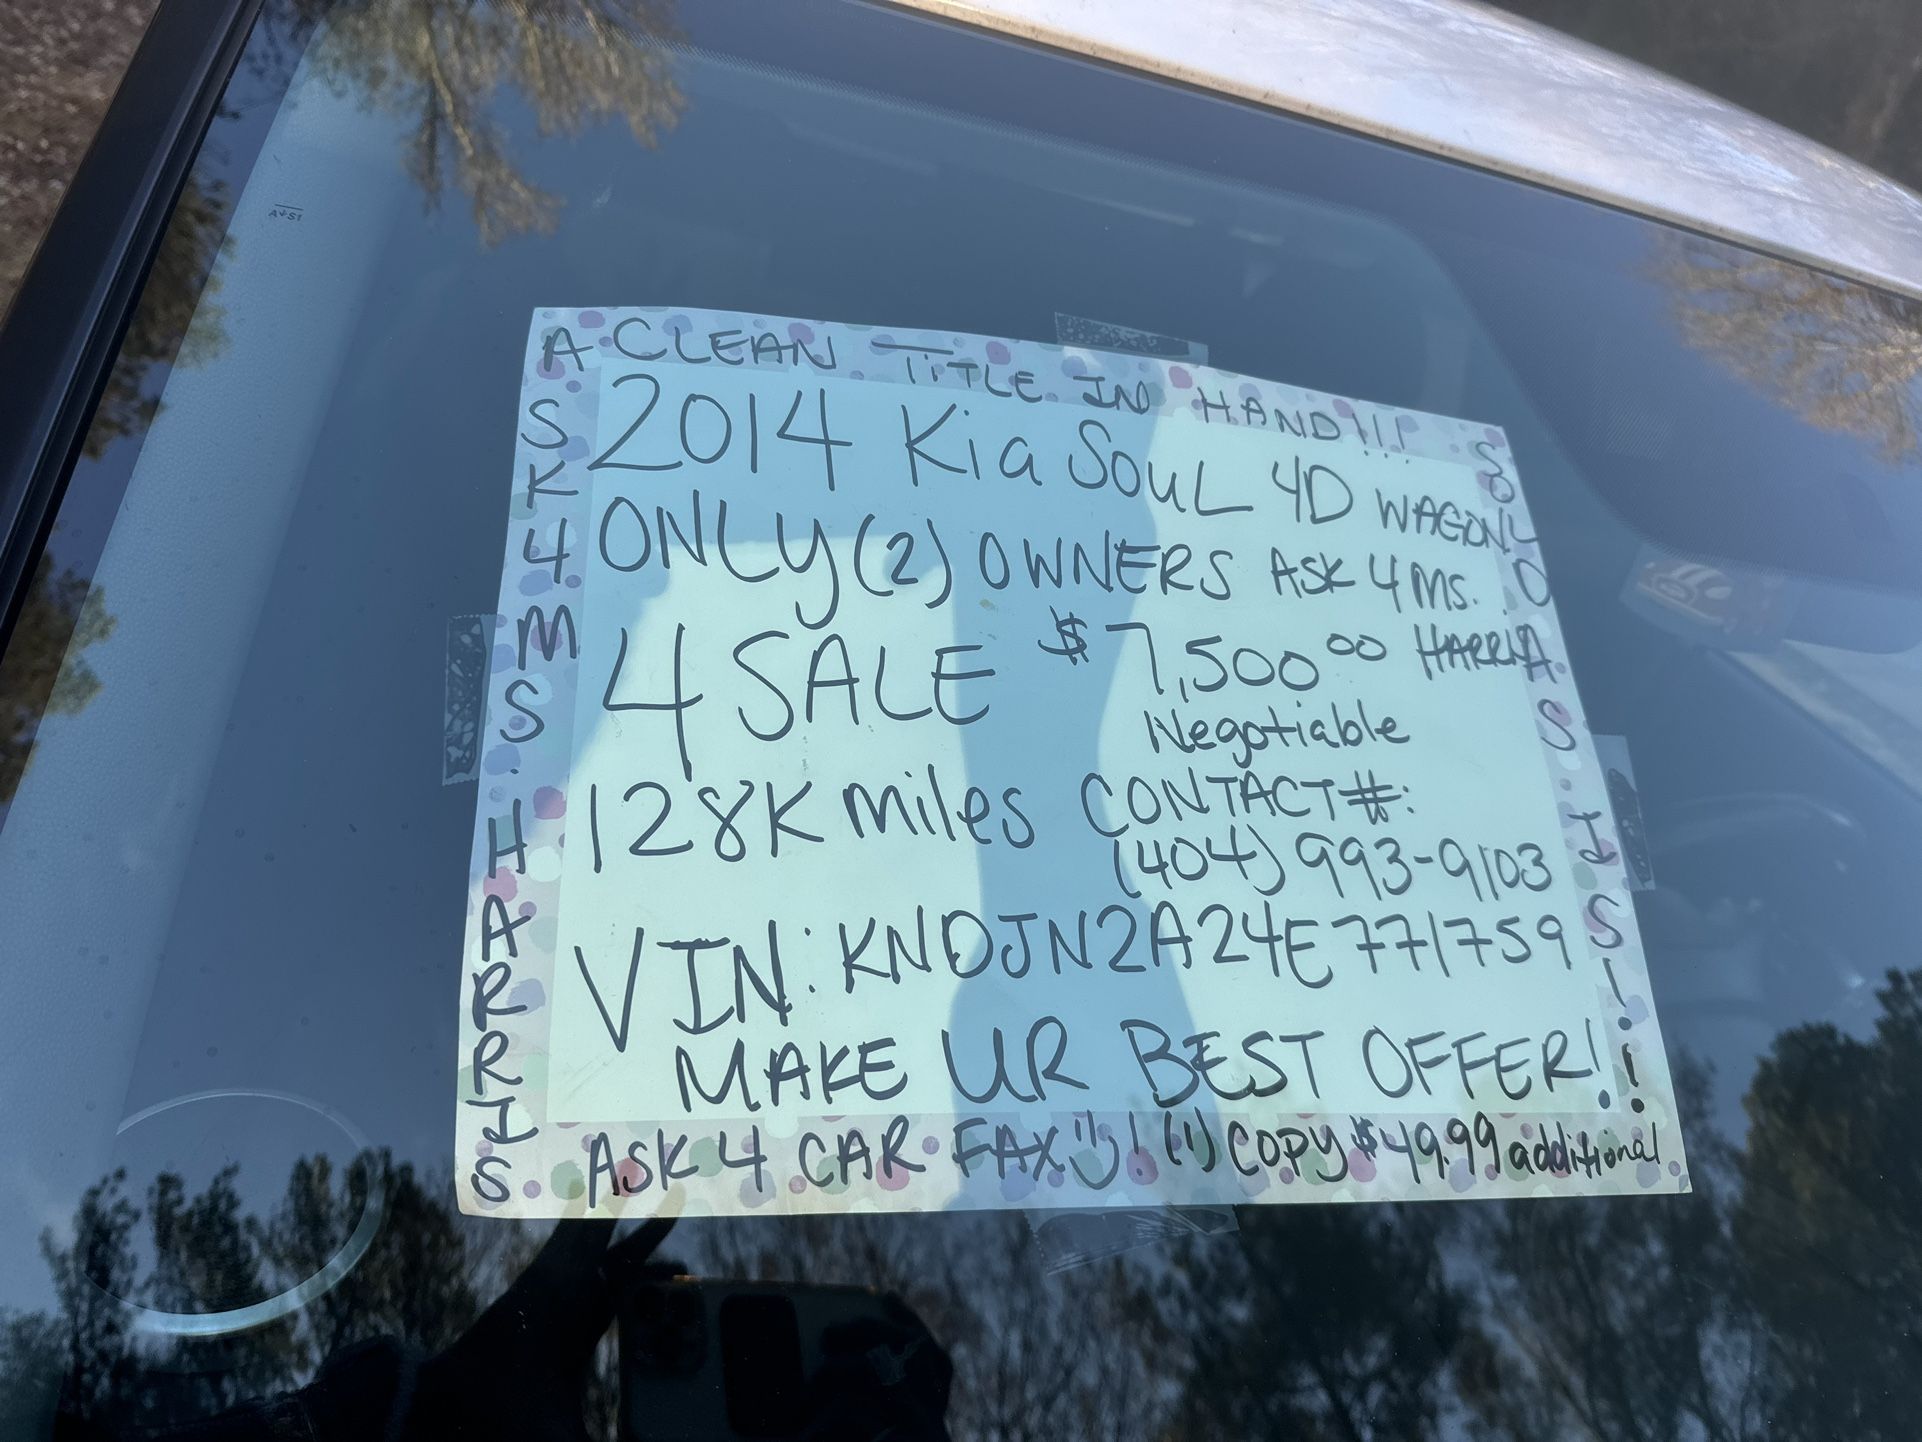 A CLEAN TITLE IN HAND!!!
2014 Kia SouL 4D WAGON
ONLY (2) OWNERS ASK 4 MS.
HARRIS
4 SALE $7,500⁰⁰
Negotiable
128K miles CONTACT#:
(404) 993-9103
VIN: KNDJN2A24E7771759
MAKE UR BEST OFFER!
ASK 4 CAR FAX! (1) COPY $49.99 additional
ASK 4 MS. HARRIS.
SOLD AS IS!!!